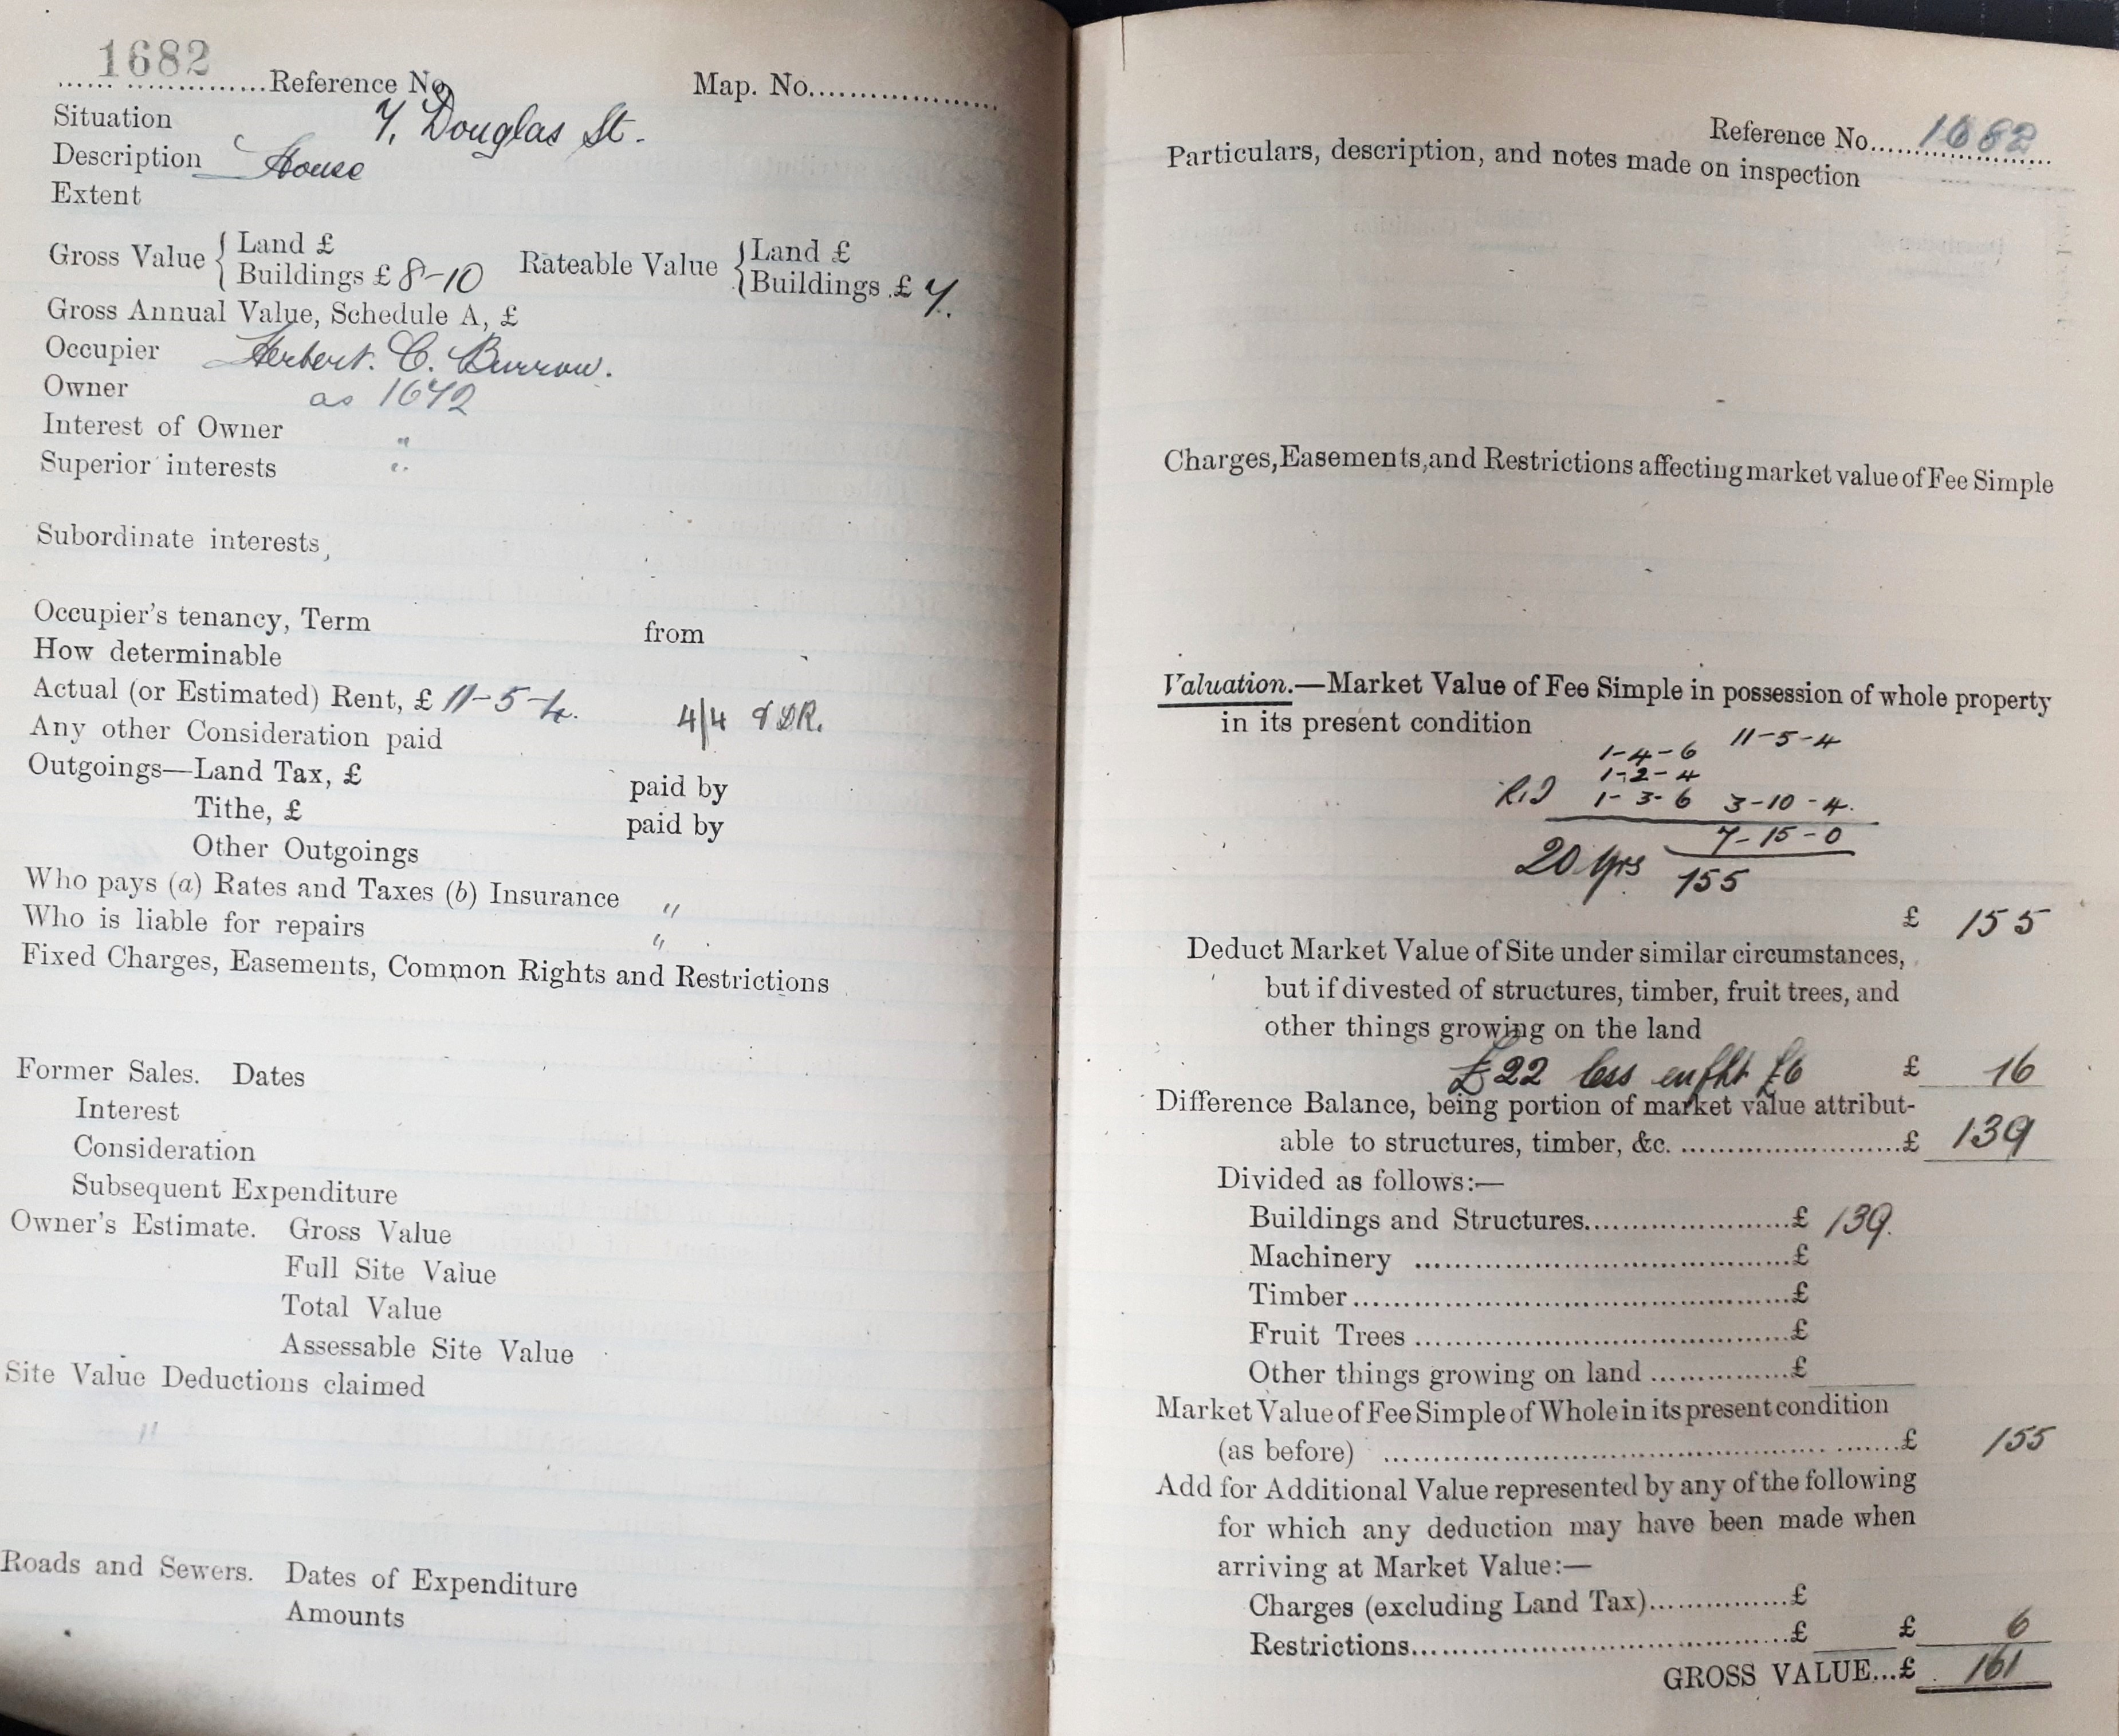 1682
Reference No.
Map. No.
Situation 7, Douglas St.
Description House
Extent
Gross Value { Land £
Buildings £ 8-10
Rateable Value { Land £
Buildings £ 7.
Gross Annual Value, Schedule A, £
Occupier Herbert. C. Burrow.
Owner as 1642
Interest of Owner "
Superior interests "
Subordinate interests
Occupier's tenancy, Term from
How determinable
Actual (or Estimated) Rent, £ 11-5-4. 4/4 & DR.
Any other Consideration paid
Outgoings—Land Tax, £ paid by
Tithe, £ paid by
Other Outgoings
Who pays (a) Rates and Taxes (b) Insurance "
Who is liable for repairs "
Fixed Charges, Easements, Common Rights and Restrictions
Former Sales. Dates
Interest
Consideration
Subsequent Expenditure
Owner's Estimate. Gross Value
Full Site Value
Total Value
Assessable Site Value
Site Value Deductions claimed
"
Roads and Sewers. Dates of Expenditure
Amounts
Reference No. 1682
Particulars, description, and notes made on inspection
Charges, Easements, and Restrictions affecting market value of Fee Simple
Valuation.—Market Value of Fee Simple in possession of whole property
in its present condition
11-5-4
1-4-6
1-2-4
1-3-6 3-10-4.
7-15-0
20 yrs 155
£ 155
Deduct Market Value of Site under similar circumstances,
but if divested of structures, timber, fruit trees, and
other things growing on the land
£22 less £6 £ 16
Difference Balance, being portion of market value attribut-
able to structures, timber, &c. £ 139
Divided as follows:—
Buildings and Structures £ 139.
Machinery £
Timber £
Fruit Trees £
Other things growing on land £
Market Value of Fee Simple of Whole in its present condition
(as before) £ 155
Add for Additional Value represented by any of the following
for which any deduction may have been made when
arriving at Market Value:—
Charges (excluding Land Tax) £
Restrictions £ £ 6
GROSS VALUE...£ 161